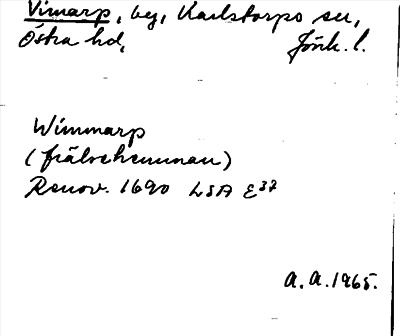 Vimarp, by, Karlstorps sn,
Östra hd, Jönk. l.
Wimmarp
(frälsehemman)
Renov. 1690 LSA E37
A. A. 1965.